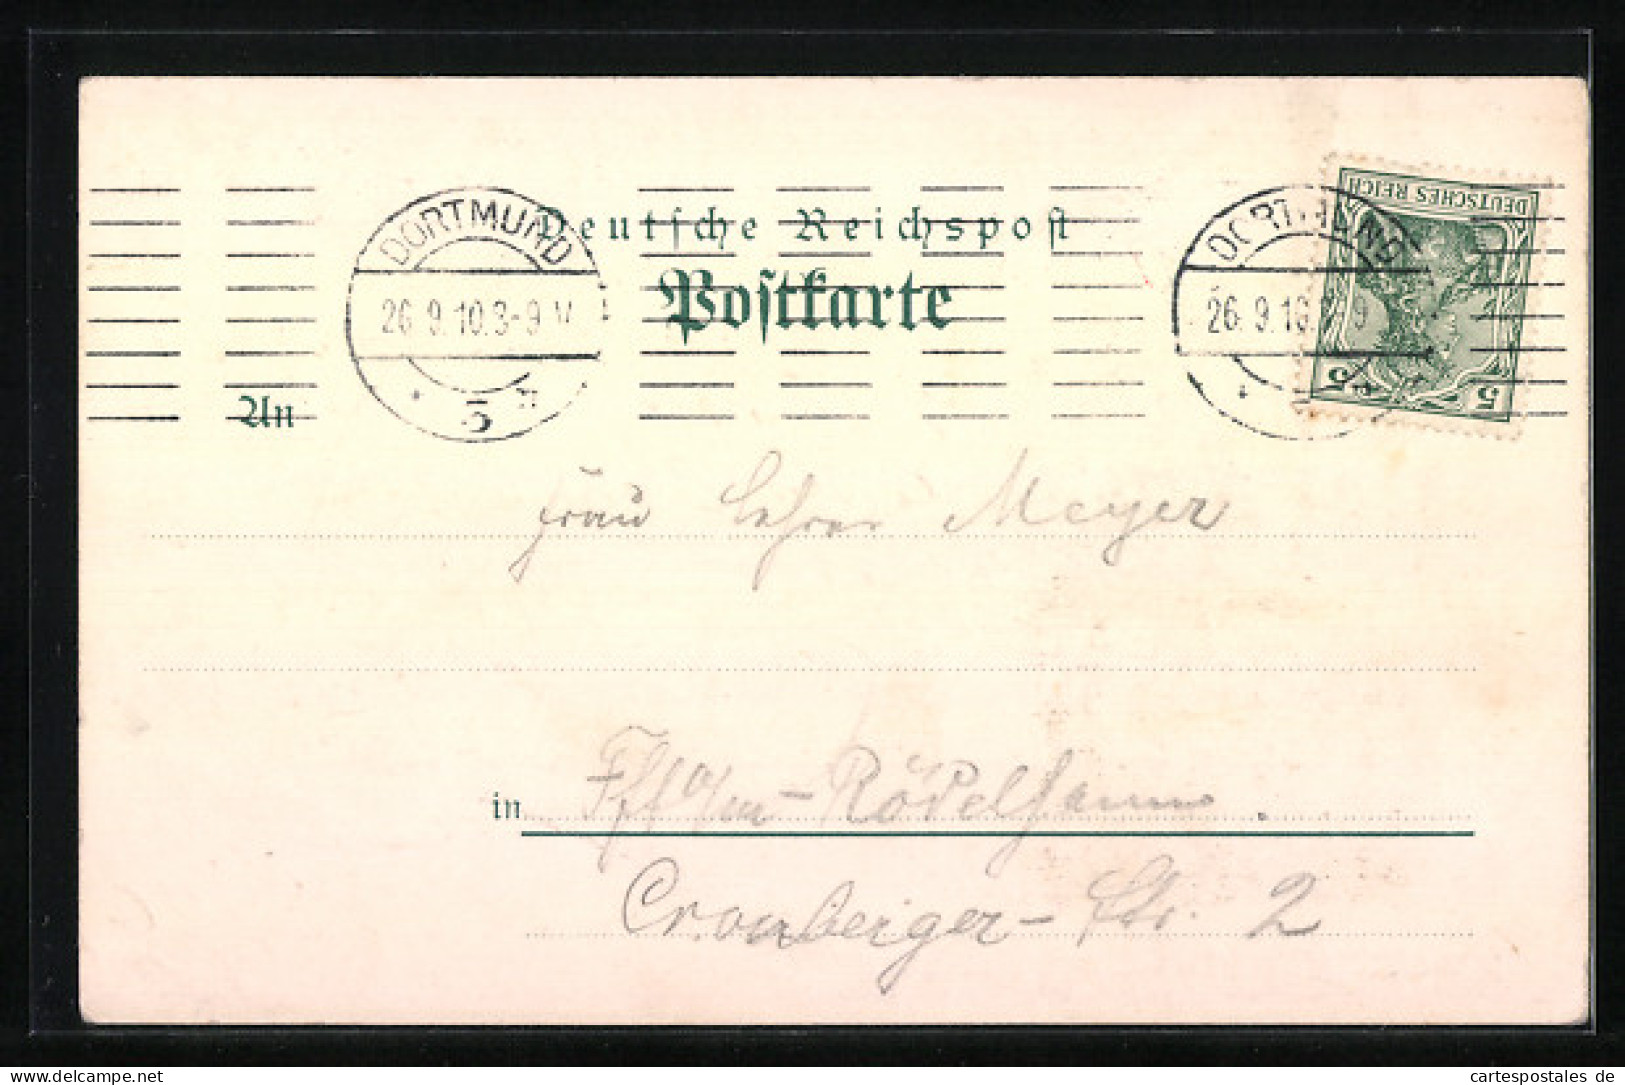 Deutsche Reichspost
Postkarte
DORTMUND
26.9.10.8-9 V
5
DORTMUND
26.9.10. 9
DEUTSCHES REICH
5 5
An
Frau Lehrer Meyer
in Fff a/m - Rödelheim.
Cronberger-Str. 2
delcampe.net
cartespostales de